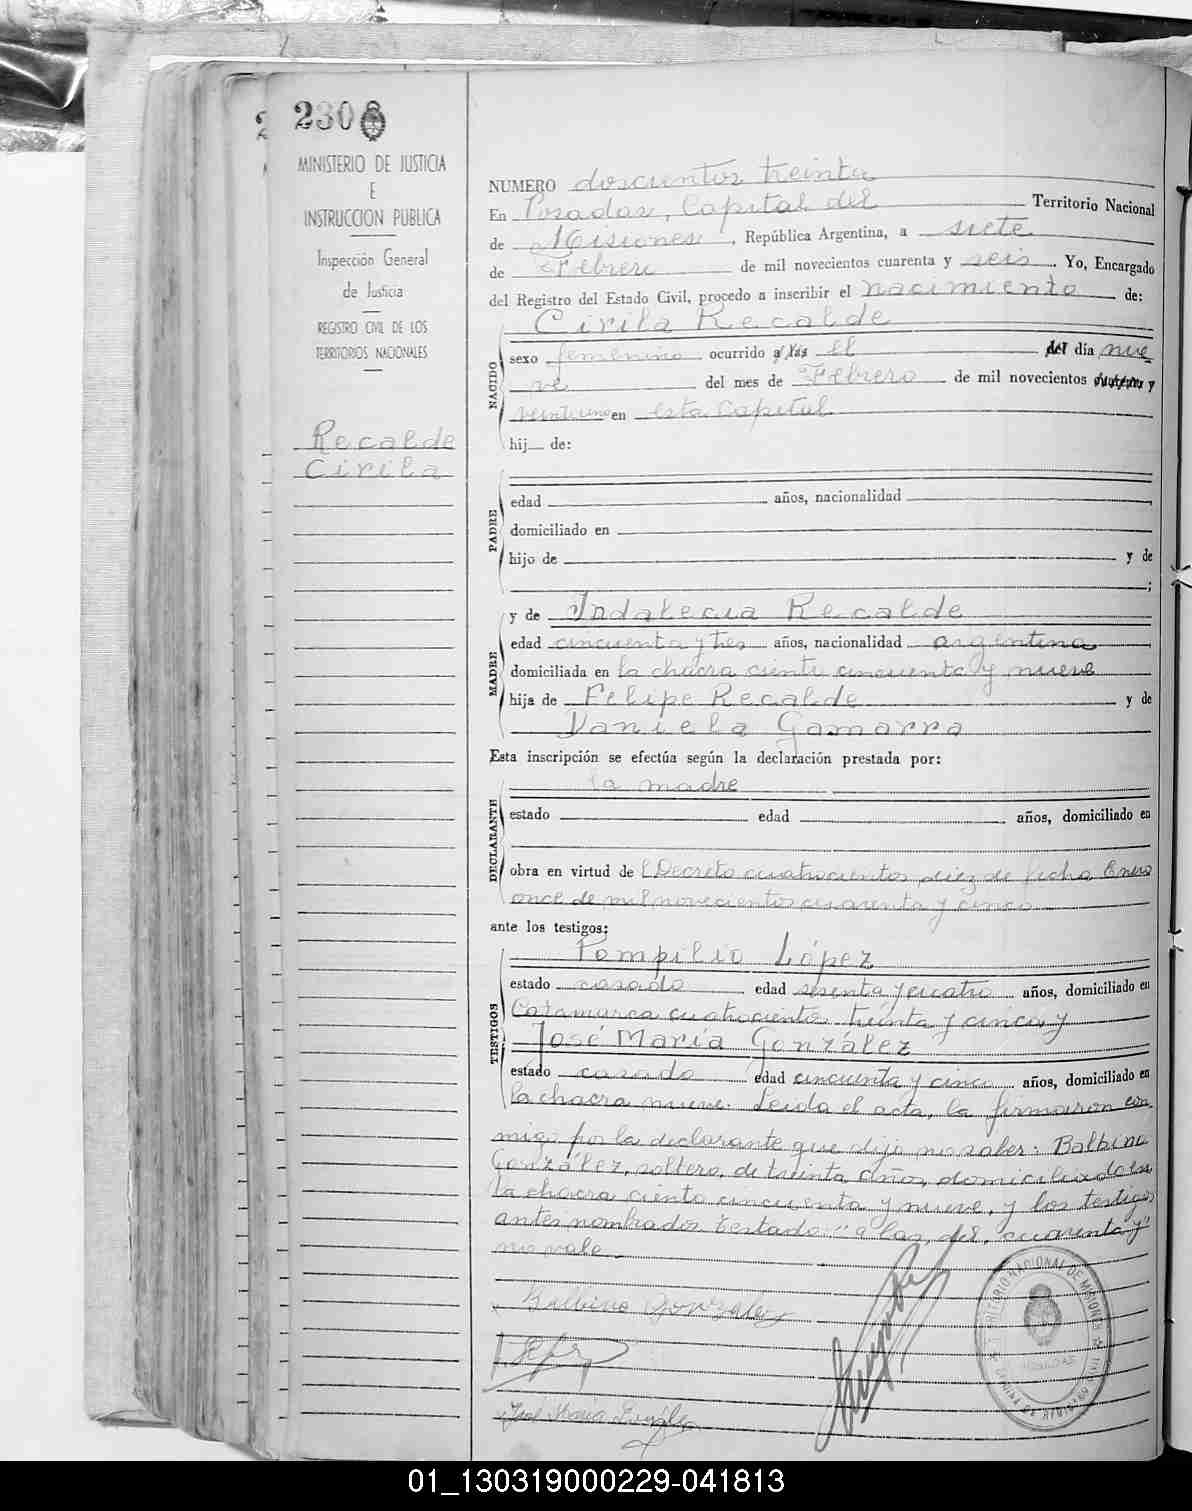 230
MINISTERIO DE JUSTICIA
E
INSTRUCCION PUBLICA
Inspección General
de Justicia
REGISTRO CIVIL DE LOS
TERRITORIOS NACIONALES
Recalde
Cirila
NUMERO doscientos treinta
En Posadas, Capital del Territorio Nacional
de Misiones, República Argentina, a siete
de Febrero de mil novecientos cuarenta y seis. Yo, Encargado
del Registro del Estado Civil, procedo a inscribir el nacimiento de:
Cirila Recalde
NACIDO
sexo femenino ocurrido a las el del día nue
ve del mes de Febrero de mil novecientos cuarenta y
veintiuno en esta Capital
hij de:
PADRE
edad años, nacionalidad
domiciliado en
hijo de y de
;
MADRE
y de Indalecia Recalde
edad cincuenta y tres años, nacionalidad argentina
domiciliada en la chacra ciento cincuenta y nueve
hija de Felipe Recalde y de
Daniela Gamarra
Esta inscripción se efectúa según la declaración prestada por:
la madre
DECLARANTE
estado edad años, domiciliado en
obra en virtud de l Decreto cuatrocientos diez de fecha Enero
once de mil novecientos cuarenta y cinco
ante los testigos:
TESTIGOS
Pompilio López
estado casado edad sesenta y cuatro años, domiciliado en
Catamarca cuatrocientos treinta y cinco y
José María González
estado casado edad cincuenta y cinco años, domiciliado en
la chacra nueve. Leida el acta, la firmaron con
migo por la declarante que dijo no saber: Balbino
González, soltero, de treinta años, domiciliado en
la chacra ciento cincuenta y nueve, y los testigos
antes nombrados testado: "a las, del, cuarenta y"
no vale.
Balbino Gonzalez
José Maria González
TERRITORIO NACIONAL DE MISIONES
POSADAS
01_130319000229-041813